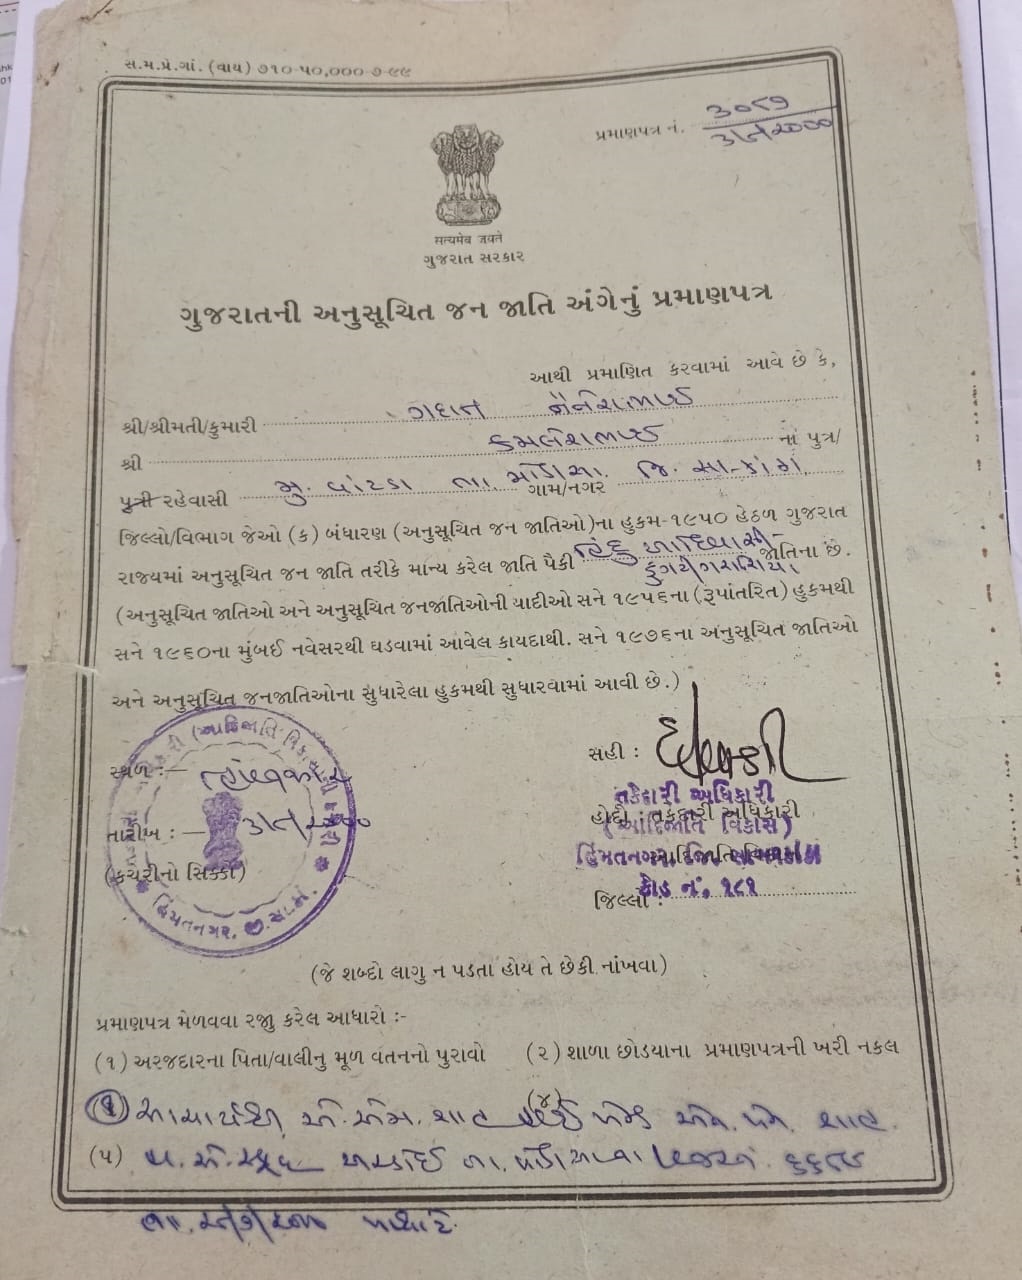 સ.મ.પ્રે.ગાં. (વાય) ૭૧૦-૫૦,૦૦૦-૭-૯૯
પ્રમાણપત્ર નં.
सत्यमेव जयते
ગુજરાત સરકાર
ગુજરાતની અનુસૂચિત જન જાતિ અંગેનું પ્રમાણપત્ર
આથી પ્રમાણિત કરવામાં આવે છે કે,
શ્રી/શ્રીમતી/કુમારી ગદાત
શ્રી કમલેશભાઈ નાં પુત્ર/
પુત્રી રહેવાસી મુ. વાંટડા તા. મોડાસા ગામ/નગર જિ. સા-કાંઠા
જિલ્લો/વિભાગ જેઓ (ક) બંધારણ (અનુસૂચિત જન જાતિઓ)ના હુકમ-૧૯૫૦ હેઠળ ગુજરાત
રાજ્યમાં અનુસૂચિત જન જાતિ તરીકે માન્ય કરેલ જાતિ પૈકી હિંદુ આદિવાસી ડુંગરી ગરાસિયા જાતિના છે.
(અનુસૂચિત જાતિઓ અને અનુસૂચિત જનજાતિઓની યાદીઓ સને ૧૯૫૬ના (રૂપાંતરિત) હુકમથી
સને ૧૯૬૦ના મુંબઈ નવેસરથી ઘડવામાં આવેલ કાયદાથી. સને ૧૯૭૬ના અનુસૂચિત જાતિઓ
અને અનુસૂચિત જનજાતિઓના સુધારેલા હુકમથી સુધારવામાં આવી છે.)
સ્થળ :—
સહી :
તકેદારી અધિકારી
હોદ્દો તકેદારી અધિકારી
તારીખ :—
(આદિજાતિ વિકાસ)
(કચેરીનો સિક્કો)
હિંમતનગર
કોડ નં. ૧૮૧
જિલ્લો :
હિંમતનગર. જી. સા.કાં.
(જે શબ્દો લાગુ ન પડતા હોય તે છેકી નાંખવા)
પ્રમાણપત્ર મેળવવા રજી કરેલ આધારો :-
(૧) અરજદારના પિતા/વાલીનુ મૂળ વતનનો પુરાવો (૨) શાળા છોડયાના પ્રમાણપત્રની ખરી નકલ
(૪)
(૫)